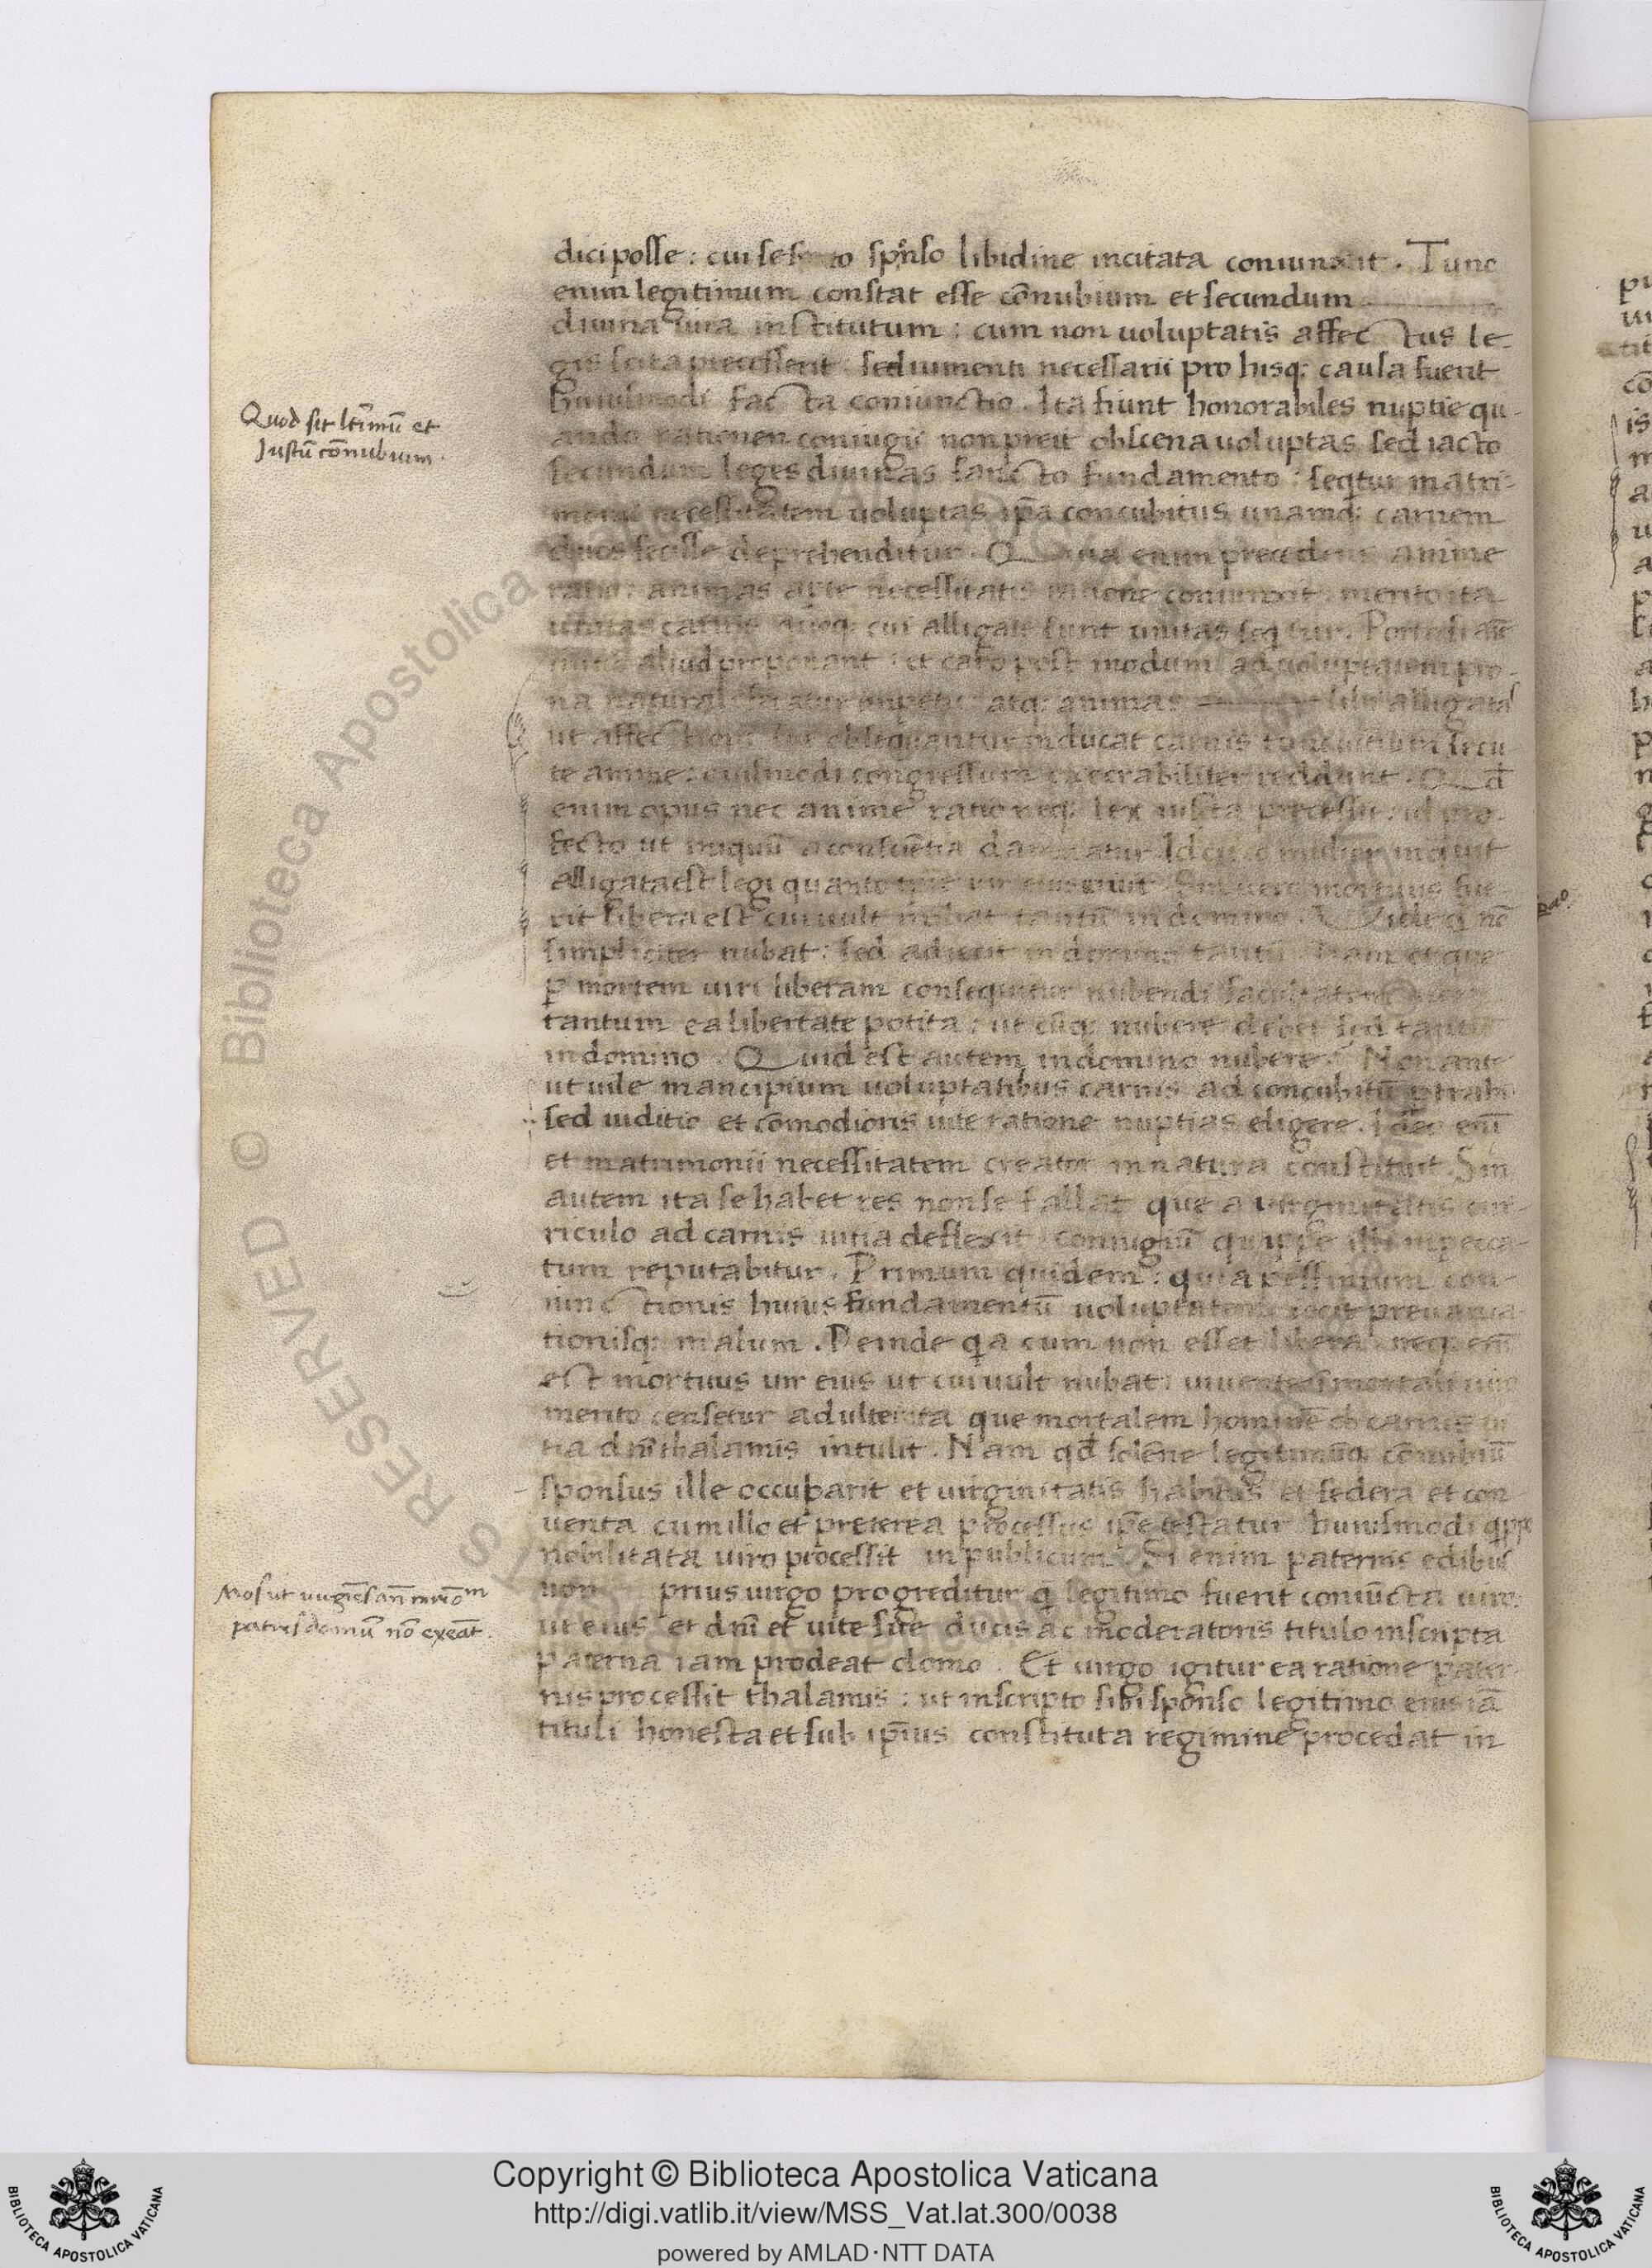 dici posse : cui se spreto spōnso libidine incitata coniunxit . Tunc
enim legitimum constat esse cōnubium et secundum
diuina iura institutum : cum non uoluptatis affectus le-
gis scita precesserit . sed iumenti necessarii pro hisq; causa fuerit
huiusmodi facta coniunctio . Ita fiunt honorabiles nuptie qu-
ando rationem coniugii non preit obscena uoluptas sed iacto
secundum leges diuinas sancto fundamento : seqtur matri-
monii necessitatem uoluptas ip̄a concubitus unamq; carnem
duos fecisse deprehenditur . Quia enim precedens anime
ratio : animas apte necessitatis ratione coniunxit : merito ita
unitas carnis quoq; cui alligate sunt unitas seqtur .
aliud preponant : et caro post modum ad uoluptatem pro-
na naturali feratur impetu : atq; animas sibi alligatas
ut affectioni sue obsequantur inducat carnis concubitum secu-
te anime : eiusmodi congressum execrabiliter reddunt . Qd̄
enim opus nec anime ratio neq; lex iusta precessit : id pro-
fecto ut iniquū a conscientia damnatur . Idcirco mulier inquit
alligata est legi quanto tp̄e uir eius uiuit . Sin uero mortuus fue-
rit libera est cui uult nubat tantū in domino . Vide q nō
simpliciter nubat : sed adiecit in domino tantū . Nam et que
p mortem uiri liberam consequitur nubendi facultatem
tantum ea libertate potita : ut cuiq; nubere debet sed tantū
in domino . Quid est autem in domino nubere ? Non ante
ut uile mancipium uoluptatibus carnis ad concubitū ptrahi
sed iuditio et cōmodioris uite ratione nuptias eligere . Ideo eni
et matrimonii necessitatem creator in natura constituit . Sin
autem ita se habet res non se fallat que a uirginitatis cur-
riculo ad carnis uitia deflexit : coniugiū quippe illi in pecca-
tum reputabitur . Primum quidem : quia pessimum con-
iunctionis huius fundamentū uoluptatem iecit preuarica-
tionisq; malum . Deinde qa cum non esset libera : neq; eni
est mortuus uir eius ut cui uult nubat : uiuente immortali uiro
merito censetur adultera que mortalem hominē ob carnis ui-
tia dn̄i thalamis intulit . Nam qd̄ solēne legitimūq; cōnubiū
sponsus ille occuparit et uirginitatis habitus et federa et con-
uenta cum illo et preterea processus ip̄e testatur huiusmodi qppe
nobilitata uiro processit in publicum . Si enim paternis edibus
non prius uirgo progreditur q̄ legitimo fuerit coniūcta uiro :
ut eius et dn̄i et uite sue ducis ac moderatoris titulo inscripta
paterna iam prodeat domo . Et uirgo igitur ea ratione pater-
nis processit thalamis : ut inscripto sibi sponso legitimo eius iā
tituli honesta et sub ip̄ius constituta regimine procedat in
Quod sit ltīmū et
Justū cōnubium .
Mos ut uirgīes an̄ mrīom
patris domū nō exeāt .
Copyright © Biblioteca Apostolica Vaticana
http://digi.vatlib.it/view/MSS_Vat.lat.300/0038
powered by AMLAD·NTT DATA
BIBLIOTECA APOSTOLICA VATICANA
BIBLIOTECA APOSTOLICA VATICANA